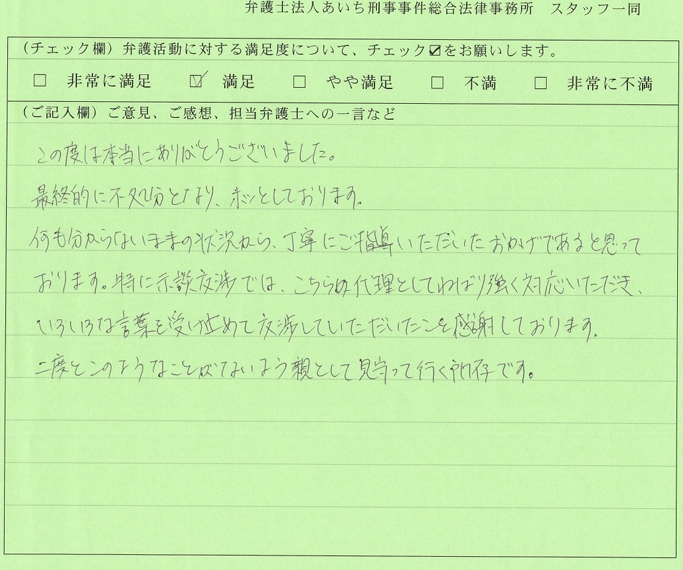 弁護士法人あいち刑事事件総合法律事務所　スタッフ一同
（チェック欄）弁護活動に対する満足度について、チェック☑をお願いします。
☐　非常に満足　☑　満足　☐　やや満足　☐　不満　☐　非常に不満
（ご記入欄）ご意見、ご感想、担当弁護士への一言など
この度は本当にありがとうございました。
最終的に不処分となり、ホッとしております。
何も分からないままの状況から、丁寧にご指導いただいたおかげであると思って
おります。特に示談交渉では、こちらの代理としてねばり強く対応いただき、
いろいろな言葉を受け止めて交渉していただいたこと感謝しております。
二度とこのようなことがないよう親として見守って行く所存です。